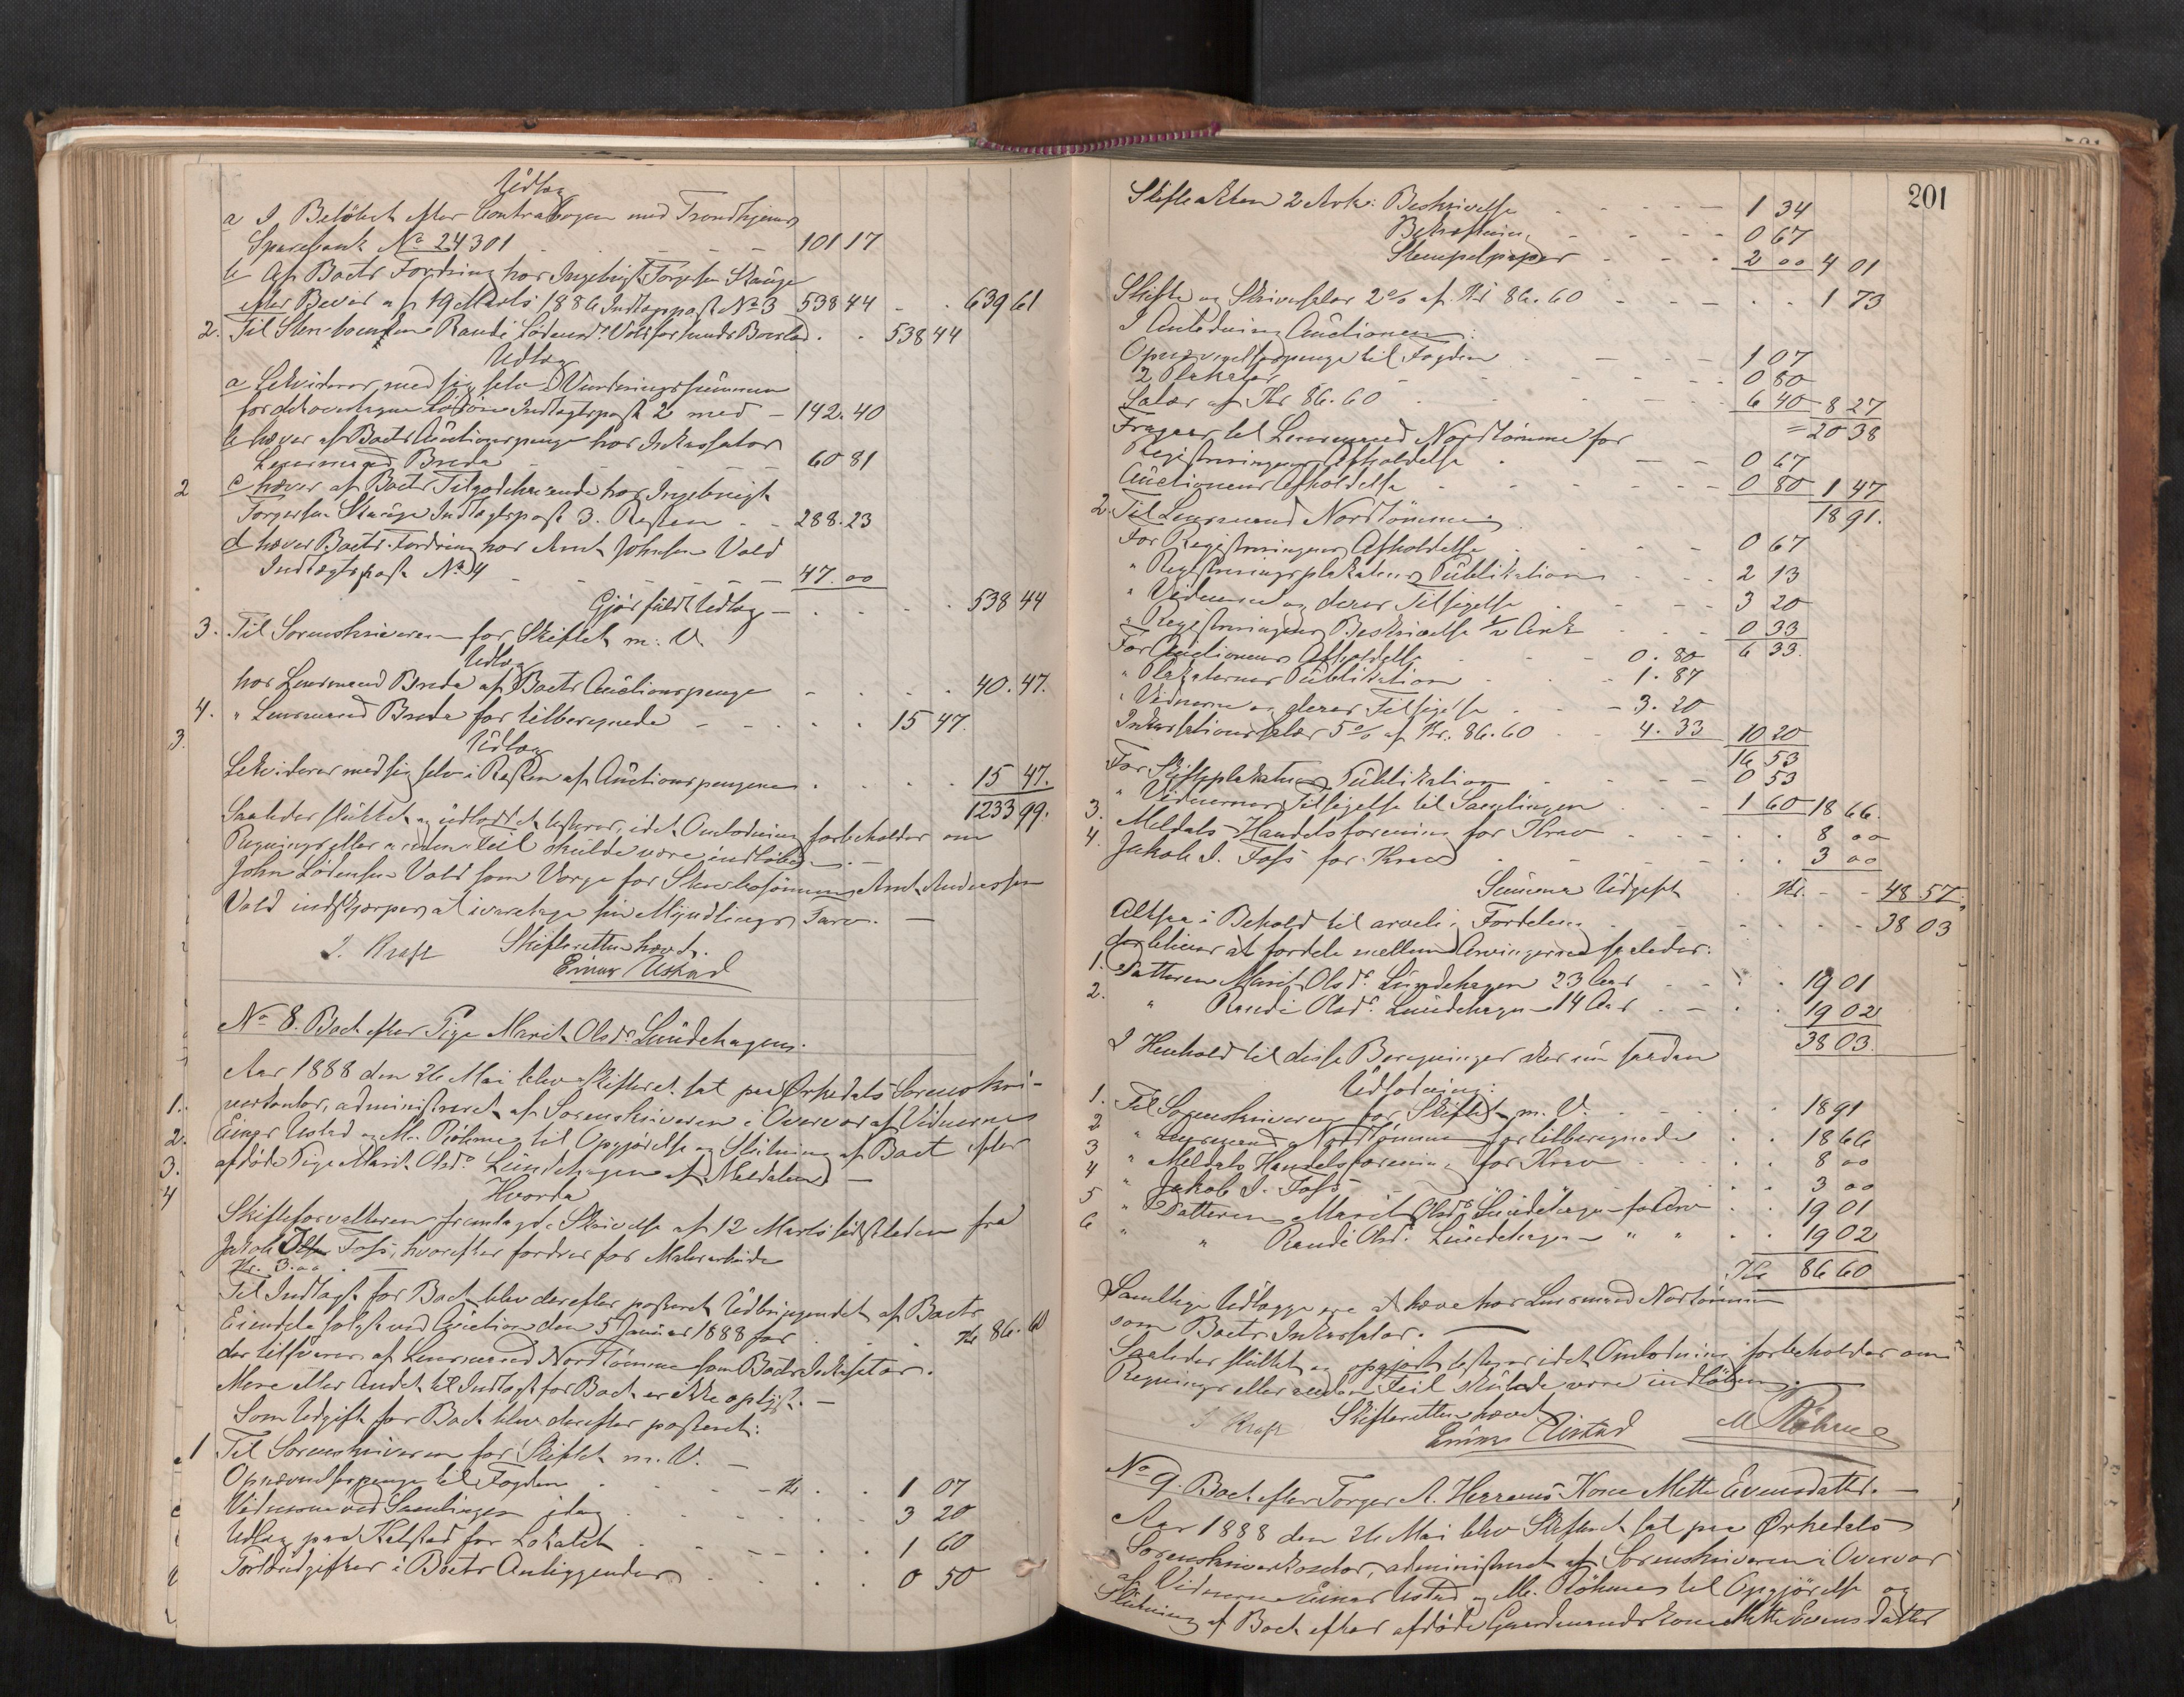 Udlæg
a I Beløbet efter Contrabogen med Trondhjems
Sparebank No 24301 - - - 101 17
b Af Boets Fordring hos Ingebrigt Torgersen Skauge
efter Bevis af 19 Marts 1886 Indtægtspost No 3 538 44 - . 639 61
2. Til Randi Lödensd. Vold . . 538 44
Udlæg
a Lekviderer med sig selv Vurderingssummen
for det overtagne Lösöre Indtægtspost 2 med - 142.40
b hæver af Boets Auctionspenge hos Inkassator
Lensmand Breda - - - 60 81
c hæver af Boets Tilgodehavende hos Ingebrigt
Torgersen Skauge Indtægtspost 3. Resten - - 288.23
d hæver Boets Fordring hos Arnt Johnsen Vold
Indtægtspost No 4 - - - 47.00
Gjör fuldt Udlæg - . . . 538 44
3. Til Sorenskriveren for Skiftet m. V.
Udlæg
hos Lensmand Breda af Boets Auctionspenge - . . . 40.47.
4. " Lensmand Breda for tilberegnede - - . . . 15 47.
Udlæg
Lekviderer med sig selv i Resten af Auctionspengene . . . . 15 47.
1233 99.
Saaledes sluttet og udloddet testeres, idet Omlodning forbeholdes om
Regnings eller anden Feil skulde være indlöben. -
John Lödensen Vold som Værge for Arnt Andersen
Vold indskjærpes at ivaretage sin Myndlings Tarv. -
Skifteretten hævet.
J. Kraft Einar Ustad
No 8. Boet efter Pige Marit Olsdr Lundehagen.
Aar 1888 den 26 Mai blev Skifteret sat paa Ørkedals Sorenskri-
verkontor, administreret af Sorenskriveren i Overvær af Vidnerne
Einar Ustad og M. Röhme til Opgjörelse og Slutning af Boet efter
afdöde Pige Marit Olsdr Lundehagen af Meldalen -
Hvorda
Skifteforvalteren fremlagde Skrivelse af 12 Marts sidstleden fra
Jakob Foss, hvorefter fordres for Malerarbeide
Kr. 3.00 -
Til Indtægt for Boet blev derefter posteret Udbringendet af Boets
Eiendele solgt ved Auction den 5 Januar 1888 for . . . Kr 86.60
der tilsvares af Lensmand Nordtömme som Boets Inkassator.
Mere eller Andet til Indtægt for Boet er ikke oplyst. -
Som Udgift for Boet blev derefter posteret:
1 Til Sorenskriveren for Skiftet m. V. -
Opnævnelsespenge til Fogden - Kr . . 1 07
Vidnerne ved Samlingen idag . . . . 3 20
Udlæg paa Kalstad for Lokalet - - - . . 1 60
Forlödsudgifter i Boets Anliggender . . . . 0 50
201
Skifteakten 2 Ark: Beskrivelse - - - - 1 34
Bekræftning - - - 0 67
Stempelpapir - - . 2 00 4 01
Skifte og Skriversalær 2% af Kr 86.60 - - - . . 1 73
I Anledning Auctionen:
Opnævnelsespenge til Fogden - - - 1 07
2 Plakater - - - 0 80
Salær af Kr 86.60 - - - 6 40 8 27
= 20 38
Fragaar til Lensmand Nordtömme for
Registreringens Afholdelse - - - 0 67
Auctionens Afholdelse - - - 0 80 1 47
18 91.
2. Til Lensmand Nordtömme
For Registreringens Afholdelse - - - 0 67
" Registreringsplakatens Publikation - - 2 13
" Vidnerne og deres Tilsigelse - - - 3 20
" Registreringens Beskrivelse 1/2 Ark . . . 0 33
6 33.
For Auctionens Afholdelse - - - 0.80
" Plakaternes Publikation - - - 1.87
" Vidnerne og deres Tilsigelse - - 3.20
Inkassationssalær 5% af Kr. 86.60 - - 4.33 10 20
16 53
For Skifteplakatens Publikation - - - 0 53
" Vidnernes Tilsigelse til Samlingen - - 1 60 18 66.
3. Meldals Handelsforening for Krav - - . . 8 00
4. Jakob I. Foss for Krav - - - . . 3 00
Summa Udgift . Kr. - - 48 57.
Altsaa i Behold til arvelig Fordeling . - - - - 38 03
der bliver at fordele mellem Arvingerne saaledes:
1. Datteren Marit Olsdr. Lundehagen 23 Aar - - . . 19 01
2. " Randi Olsdr. Lundehagen 14 Aar - - . . 19 02
38 03.
I Henhold til disse Beregninger sker nu saadan
Udlodning:
1. Til Sorenskriveren for Skiftet m. V. - - . . 18 91
2 " Lensmand Nordtömme for tilberegnede . . 18 66
3 " Meldals Handelsforening for Krav - - . . 8 00
4 " Jakob I. Foss - - - . . 3 00
5 " Datteren Marit Olsdr Lundehagen for Arv . . 19 01
6 " " Randi Olsdr. Lundehagen " " . . 19 02
Kr 86 60
Samtlige Udlægge ere at hæve hos Lensmand Nordtömme
som Boets Inkassator. -
Saaledes sluttet og opgjort testeres idet Omlodning forbeholdes om
Regnings eller anden Feil skulde være indlöben. -
Skifteretten hævet
J Kraft Einar Ustad M Röhme
No 9. Boet efter Torger A. Herrems Kone Mette Evensdatter. -
Aar 1888 den 26 Mai blev Skifteret sat paa Ørkedals
Sorenskriverkontor, administreret af Sorenskriveren i Overvær
af Vidnerne Einar Ustad og M. Röhme til Opgjörelse og
Slutning af Boet efter afdöde Gaardmandskone Mette Evensdatter